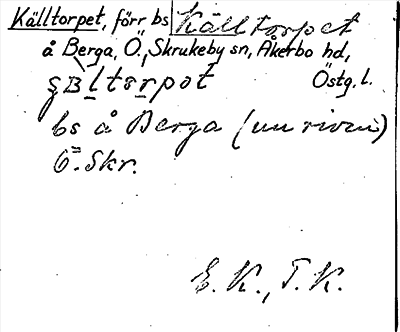 Källtorpet, förr bs Källtorpet
å Berga, Ö., Skrukeby sn, Åkerbo hd,
Östg. l.
bs å Berga (nu riven)
Ö. Skr.
E. K., T. K.